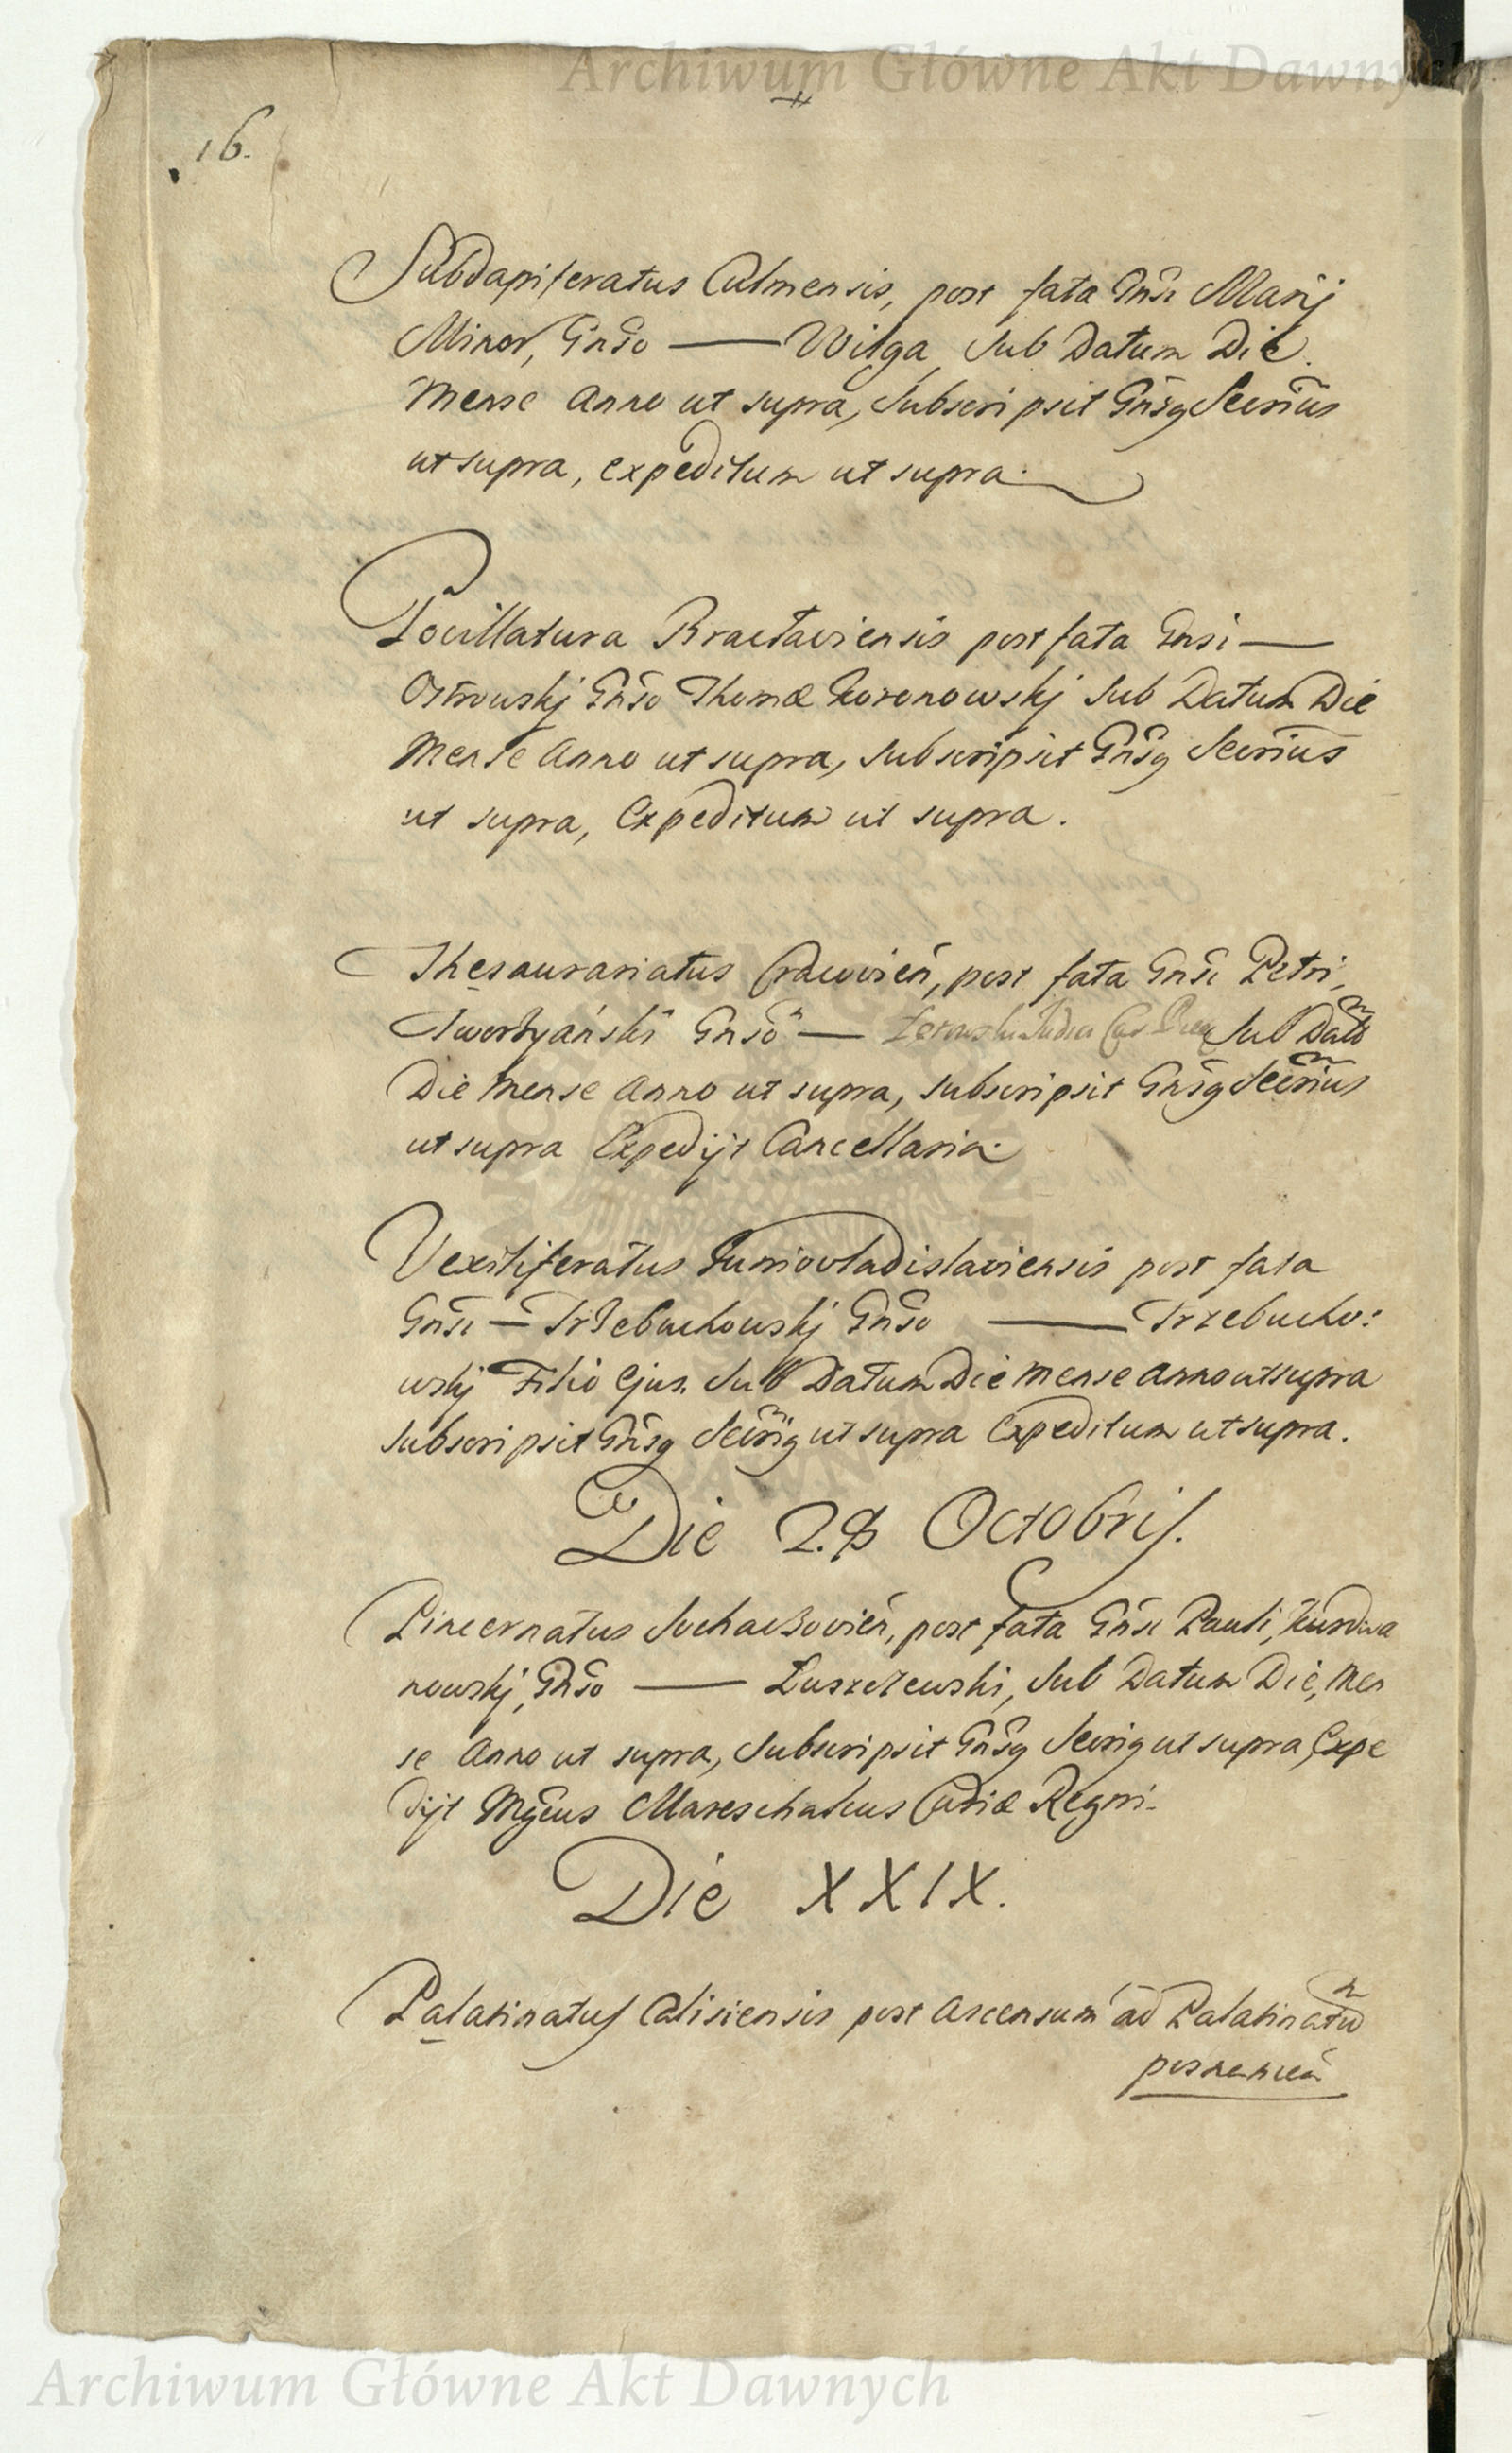 Archiwum Główne Akt Dawnych
16.
Subdapiferatus Culmensis, post fata Gnsi Marij
Minor, Gnso — Wilga Sub Datum Die
Mense Anno ut supra, Subscripsit Gnsq Secrius
ut supra, expeditum ut supra.
Pocillatura Braclaviensis post fata Gnsi —
Ostrowskj Gnso Thomæ Koronowskj Sub Datum Die
Mense Anno ut supra, Subscripsit Gnsq Secrius
ut supra, Expeditum ut supra.
Thesaurariatus Cracovien, post fata Gnsi Petri
Gnso — Sub Dato
Die Mense Anno ut supra, subscripsit Gnsq Secrius
ut supra Expedijt Cancellaria.
Vexiliferatus Junivladislaviensis post fata
Gnsi — Trzebuchowskj Gnso — Trzebucho:
wskj Filio Ejus. Sub Datum Die Mense Anno ut supra
Subscripsit Gnsq Secriq ut supra Expeditum ut supra.
Die 28 Octobris.
Pincernatus Sochaczovien, post fata Gnsi Pauli, Kurdwa
nowskj, Gnso — Luszczewski, Sub Datum Die, Men
se Anno ut supra, Subscripsit Gnsq Secriq ut supra, Expe
dijt Mgcus Mareschalcus Curiæ Regni.
Die XXIX.
Palatinatus Calisiensis post Ascensum ad Palatinatu
posnanien
Archiwum Główne Akt Dawnych